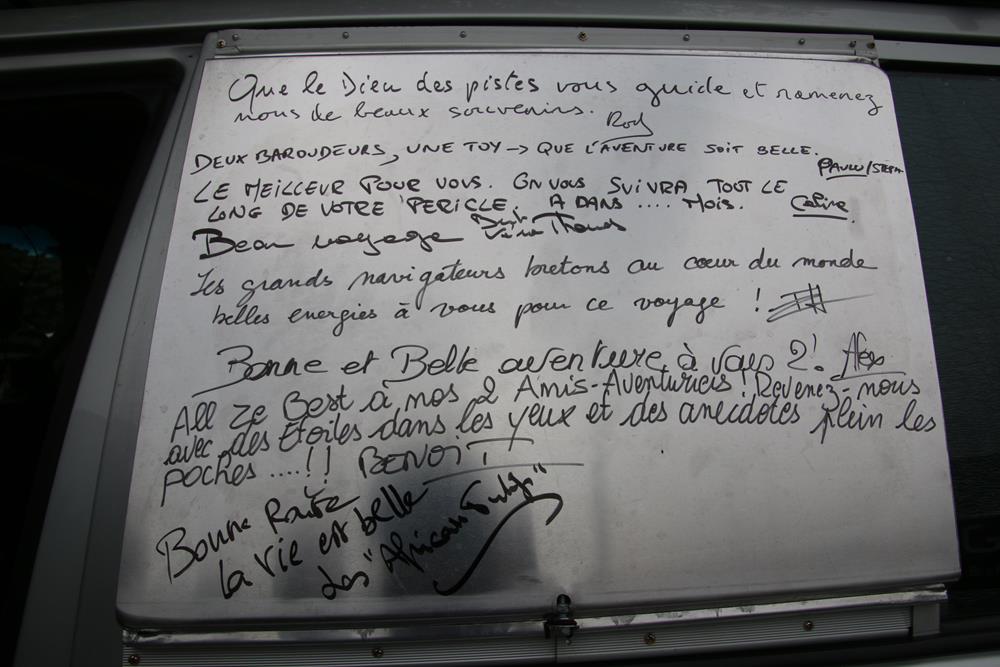 Que le Dieu des pistes vous guide et ramenez
nous de beaux souvenirs.
Rod
DEUX BAROUDEURS, UNE TOY → QUE L'AVENTURE SOIT BELLE.
PAULO/STEPH
LE MEILLEUR POUR VOUS. ON VOUS SUIVRA TOUT LE
LONG DE VOTRE PERICLE. A DANS .... MOIS. Celine
Beau voyage
Les grands navigateurs bretons au cœur du monde
belles energies à vous pour ce voyage !
Bonne et Belle aventure à vous 2! Alex
All ze Best à nos 2 Amis-Aventuriers! Revenez-nous
avec des étoiles dans les yeux et des anecdotes plein les
poches ....!! BENOIT
Bonne Route
la vie est belle
des "African